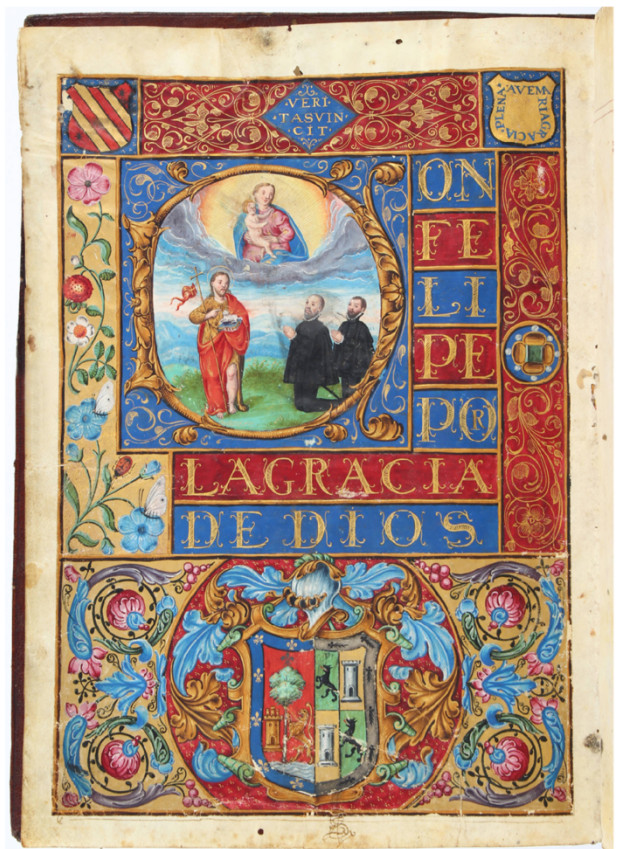 VERI
TASVIN
CIT
AVEM
RIAGRACIA
PLENA
DON
FE
LI
PE
POR
LAGRACIA
DE DIOS